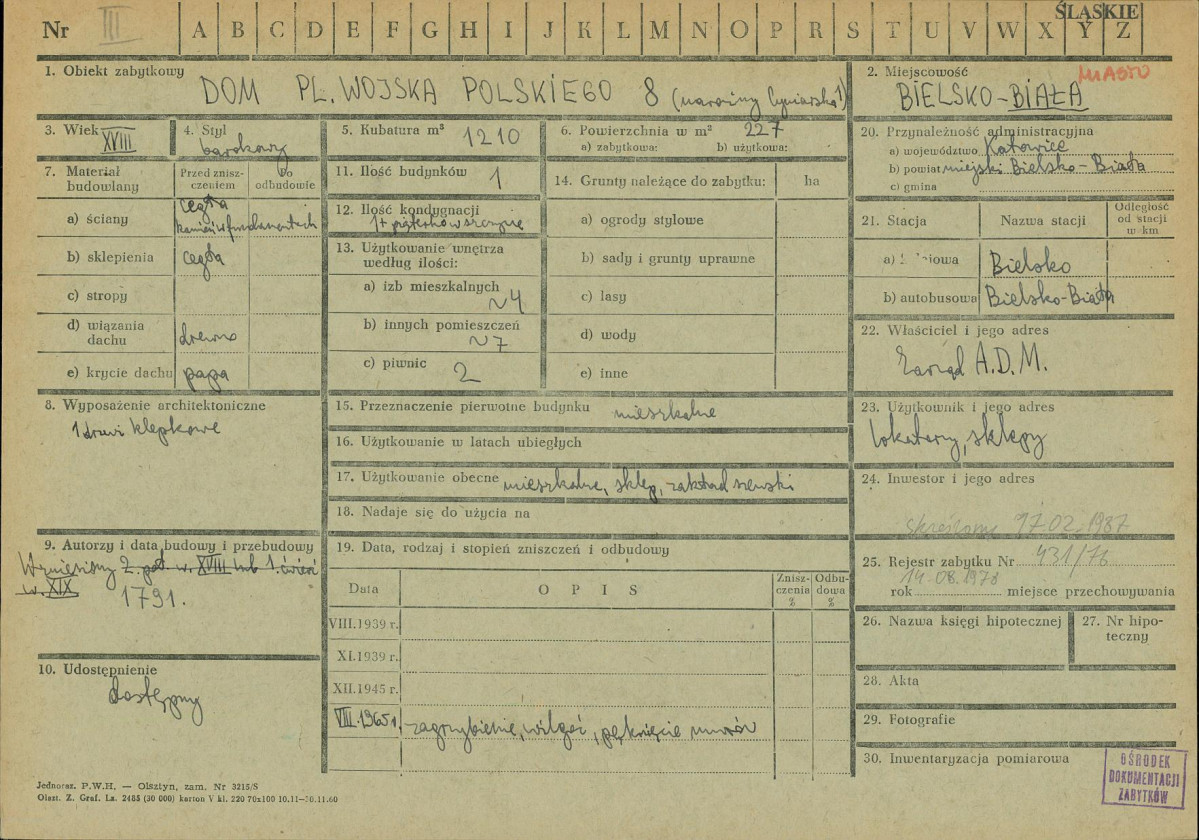 Nr III A B C D E F G H I J K L M N O P R S T U V W X Y Z
ŚLĄSKIE
1. Obiekt zabytkowy
DOM PL. WOJSKA POLSKIEGO 8 (narożny Cyniarska 1)
2. Miejscowość
MIASTO
BIELSKO-BIAŁA
3. Wiek
XVIII
4. Styl
barokowy
5. Kubatura m³ 1210
6. Powierzchnia w m² 227
a) zabytkowa: b) użytkowa:
7. Materiał budowlany
Przed zniszczeniem
Po odbudowie
a) ściany cegła
kamień w fundamentach
b) sklepienia cegła
c) stropy
d) wiązania dachu drewno
e) krycie dachu papa
8. Wyposażenie architektoniczne
1 drzwi klepkowe
9. Autorzy i data budowy i przebudowy
Wzniesiony 2. poł. w. XVIII lub 1. ćwierć
w. XIX
1791.
10. Udostępnienie
dostępny
11. Ilość budynków 1
12. Ilość kondygnacji
1 + piąterko w szczycie
13. Użytkowanie wnętrza
według ilości:
a) izb mieszkalnych
~4
b) innych pomieszczeń
~7
c) piwnic 2
14. Grunty należące do zabytku: ha
a) ogrody stylowe
b) sady i grunty uprawne
c) lasy
d) wody
e) inne
15. Przeznaczenie pierwotne budynku mieszkalne
16. Użytkowanie w latach ubiegłych
17. Użytkowanie obecne mieszkalne, sklep, zakład szewski
18. Nadaje się do użycia na
19. Data, rodzaj i stopień zniszczeń i odbudowy
Data OPIS Zniszczenia % Odbudowa %
VIII.1939 r.
XI.1939 r.
XII.1945 r.
VIII.1965 r. zagrzybienie, wilgoć, pęknięcie murów
20. Przynależność administracyjna
a) województwo Katowice
b) powiat miejski Bielsko-Biała
c) gmina
21. Stacja Nazwa stacji Odległość od stacji w km
a) Bielsko
b) autobusowa Bielsko-Biała
22. Właściciel i jego adres
Zarząd A.D.M.
23. Użytkownik i jego adres
lokatorzy, sklepy
24. Inwestor i jego adres
skreślony 17.02.1987
25. Rejestr zabytku Nr 431/76
14.08.1978
rok miejsce przechowywania
26. Nazwa księgi hipotecznej
27. Nr hipoteczny
28. Akta
29. Fotografie
30. Inwentaryzacja pomiarowa
OŚRODEK
DOKUMENTACJI
ZABYTKÓW
Jednoraz. P.W.H. — Olsztyn, zam. Nr 3215/S
Olszt. Z. Graf. La. 2485 (30 000) karton V kl. 220 70x100 10.11—30.11.60